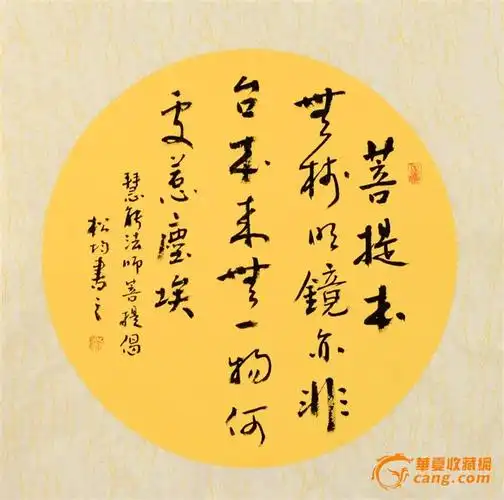 菩提本
無樹明鏡亦非
台本来無一物何
處惹塵埃
慧能法師菩提偈
松均書之
華夏收藏網
cang.com